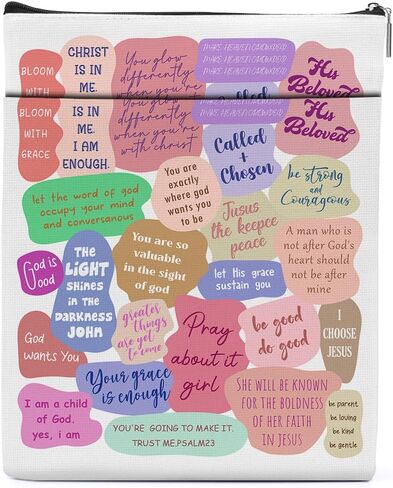 BLOOM
WITH
CHRIST
IS IN
ME.
You glow
differently
when you're
MAKE HEAVEN CROWDED
MAKE HEAVEN CROWDED
MAKE HEAVEN CROWDED
His
Beloved
BLOOM
WITH
GRACE
IS IN
ME.
I AM
ENOUGH.
You glow
differently
when you're
with christ
MAKE HEAVEN CROWDED
Called
+
Chosen
His
Beloved
let the word of god
occupy your mind
and conversanous
You are
exactly
where god
wants you
to be
be strong
and
Courageous
Jusus
the keepce
peace
A man who is
not after God's
heart should
not be after
mine
God is
Good
THE
LIGHT
SHINES
IN THE
DARKNESS
JOHN
You are so
valuable
in the sight
of god
let His grace
sustain you
God
wants You
greater
things
are yet
to come
Pray
about it
girl
be good
do good
I
CHOOSE
JESUS
Your grace
is enough
I am a child
of God.
yes, i am
YOU'RE GOING TO MAKE IT.
TRUST ME.PSALM23
SHE WILL BE KNOWN
FOR THE BOLDNESS
OF HER FAITH
IN JESUS
be parent
be loving
be kind
be gentle